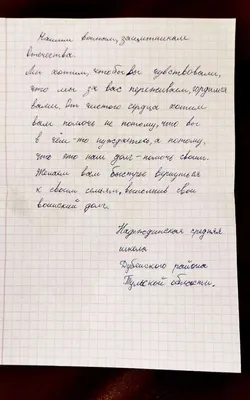 Нашим воинам, защитникам
Отечества.
Мы хотим, чтобы вы чувствовали,
что мы за вас переживаем, гордимся
вами. От чистого сердца хотим
вам помочь не потому, что вы
в чём-то нуждаетесь, а потому,
что это наш долг - помочь своим.
Желаем вам быстрее вернуться
к своим семьям, выполнив свой
воинский долг.
средняя
школа
Дубенского района
Тульской области.